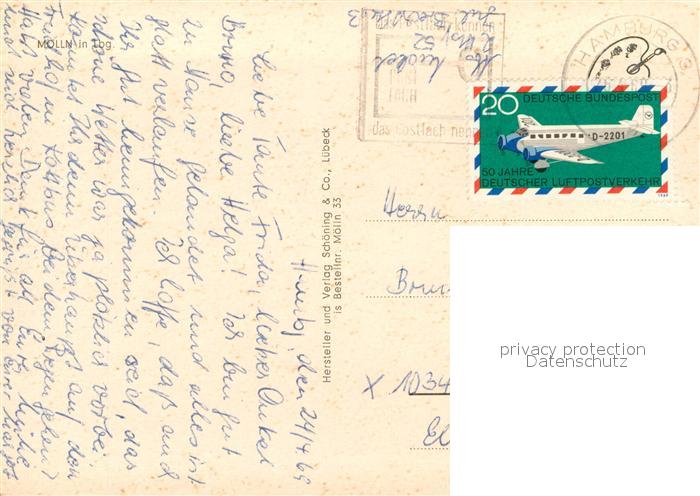 MÖLLN in Lbg.
Hambg, den 24/4.69
Liebe Tante Frida, lieber Onkel
Bruno, liebe Helga! Ich bin gut
zu Hause gelandet und alles ist
glatt verlaufen. Ich hoffe, daß auch
Ihr gut heimgekommen seid, das
schöne Wetter war ja plötzlich vorbei.
konntet Ihr denn überhaupt auf den
Friedhof in bei dem Regen gehen?
Habt vielen Dank für all Eure Mühe
und seid herzlich gegrüßt von Eurer
Hersteller und Verlag Schöning & Co., Lübeck
is Bestellnr: Mölln 33
kennen
das Postfach
HAMBURG 3
20 DEUTSCHE BUNDESPOST
D-2201
50 JAHRE
DEUTSCHER LUFTPOSTVERKEHR
1969
Herrn
X 1034
privacy protection
Datenschutz